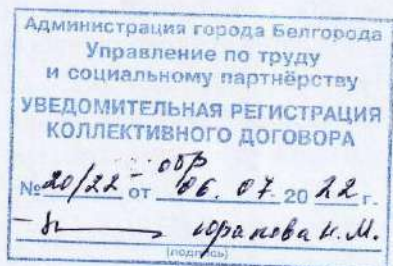 Администрация города Белгорода
Управление по труду
и социальному партнёрству
УВЕДОМИТЕЛЬНАЯ РЕГИСТРАЦИЯ
КОЛЛЕКТИВНОГО ДОГОВОРА
№ 20/22 - обр от 06. 07. 20 22 г.
Н.М.
(подпись)